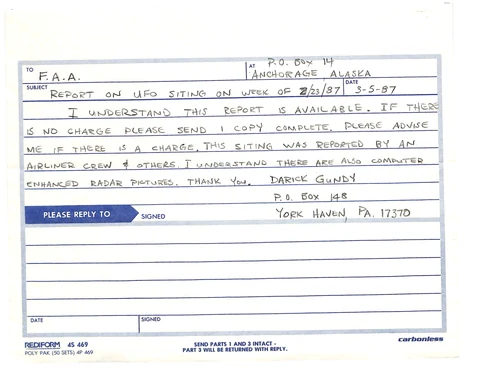 TO
F.A.A.
AT
P.O. BOX 14
ANCHORAGE, ALASKA
SUBJECT
REPORT ON UFO SITING ON WEEK OF 2/23/87
DATE
3-5-87
I UNDERSTAND THIS REPORT IS AVAILABLE. IF THERE
IS NO CHARGE PLEASE SEND 1 COPY COMPLETE. PLEASE ADVISE
ME IF THERE IS A CHARGE. THIS SITING WAS REPORTED BY AN
AIRLINER CREW & OTHERS. I UNDERSTAND THERE ARE ALSO COMPUTER
ENHANCED RADAR PICTURES. THANK YOU. DARICK GUNDY
P.O. BOX 148
YORK HAVEN, PA. 17370
PLEASE REPLY TO
SIGNED
DATE
SIGNED
REDIFORM 4S 469
POLY PAK (50 SETS) 4P 469
SEND PARTS 1 AND 3 INTACT -
PART 3 WILL BE RETURNED WITH REPLY.
carbonless